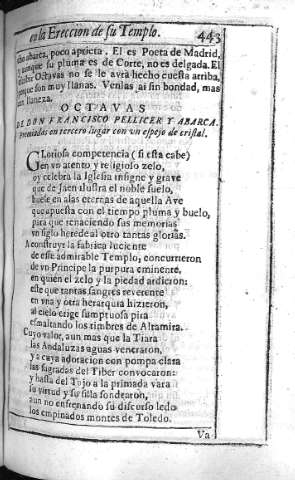 en la Ereccion de su Templo. 443
cho abarca, poco aprieta. El es Poeta de Madrid,
y aunque su pluma es de Corte, no es delgada. El
Octavas no se le avrà hecho cuesta arriba,
porque son muy llanas. Venlas assi sin bondad, mas
con llaneza.
OCTAVAS
DE DON FRANCISCO PELLICER Y ABARCA.
Premiadas en tercero lugar con un espejo de cristal.
Gloriosa competencia ( si esta cabe)
en vn atento y religioso zelo,
oy celebra la Iglesia insigne y grave
que de Jaen ilustra el noble suelo,
buele en alas eternas de aquella Ave
que apuesta con el tiempo pluma y buelo,
para que renaciendo sus memorias
vn siglo herede al otro tantas glorias.
A construyr la fabrica luciente
de este admirable Templo, concurrieron
de vn Principe la purpura eminente,
en quien el zelo y la piedad ardieron:
este que tantas sangres reverente
en vna y otra herarquia hizieron,
al cielo erige sumptuosa pira
esmaltando los timbres de Altamira.
Cuyo valor, aun mas que la Tiara
las Andaluzas aguas veneraron,
y a cuya adoracion con pompa clara
las sagradas del Tiber convocaron:
y hasta del Tajo a la primada vara
su virtud y su silla sondearon,
aun no enfrenando su discurso ledo
los empinados montes de Toledo.
Va